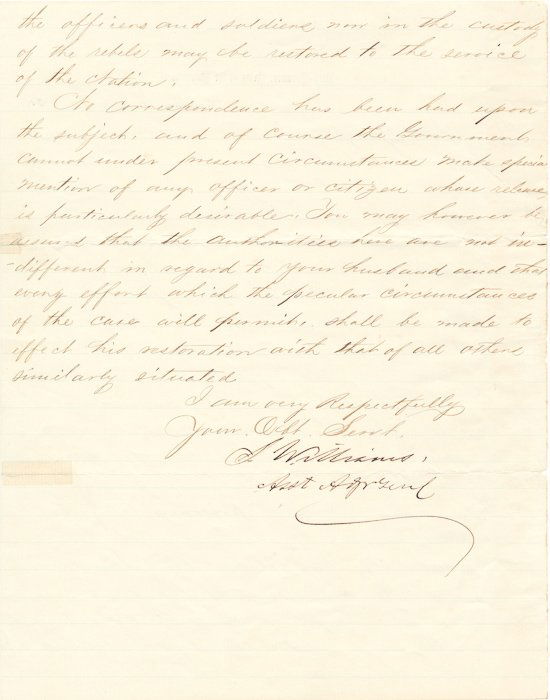 the officers and soldiers now in the custody
of the rebels may be restored to the service
of the Nation.
No correspondence has been had upon
the subject, and of course the Government
cannot under present circumstances make special
mention of any officer or citizen whose release
is particularly desirable. You may however be
assured that the authorities here are not in-
-different in regard to your husband and that
every effort which the pecular circumstances
of the case will permit, shall be made to
effect his restoration with that of all others
similarly situated
I am very Respectfully
Your. Obt. Servt.
S Williams.
Asst Adjt Genl